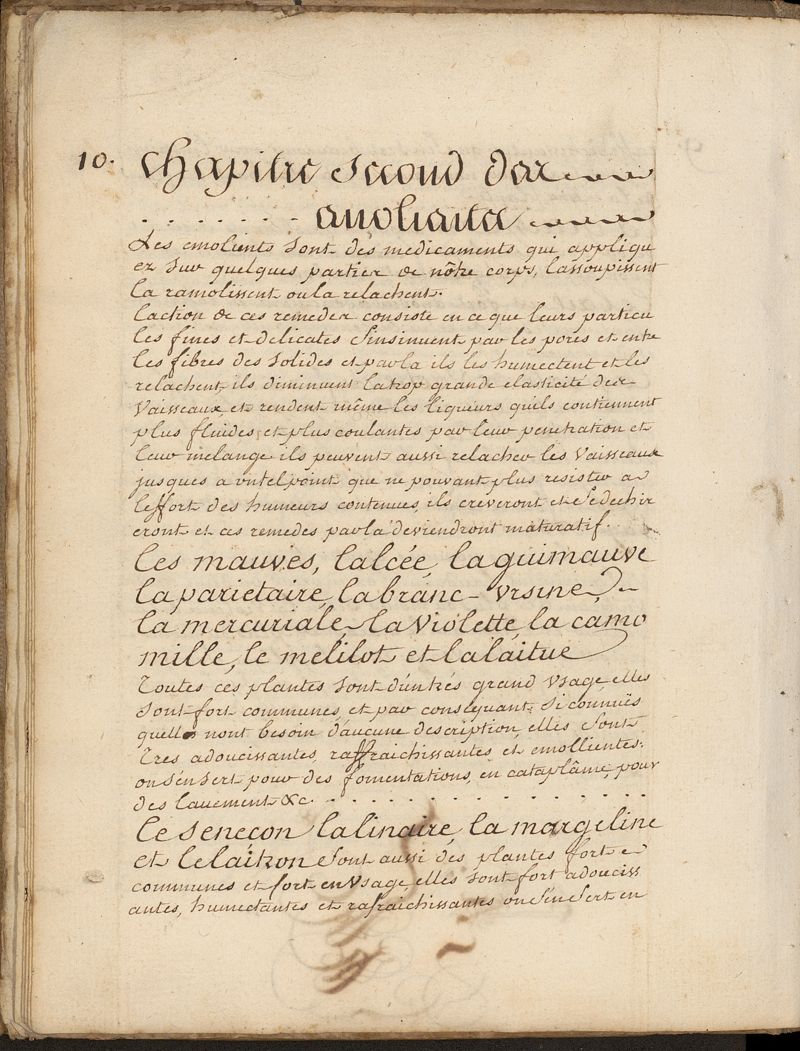 10. Chapitre second des
emoliants
Les emolients sont des medicaments qui appliqu
ez sur quelques parties de nôtre corps, lassoupissent
la ramolissent ou la relachent.
Laction de ces remedes consiste en ce que leurs particu
les fines et delicates sinsinuent par les pores et entre
les fibres des solides et par la ils les humectent et les
relachent, ils diminuent la trop grande elasticité des
Vaisseaux, et rendent même les liqueurs quils contiennent
plus fluides et plus coulantes par leur penetration et
leur melange ils peuvent aussi relacher les Vaisseaux
jusques a un tel point que ne pouvant plus resister a
leffort des humeurs contenues, ils creveront et se dechir
eront et ces remedes par la deviendront maturatif.
Les mauves, lalcée, la guimauve
la parietaire, la branc-ursine,
la mercuriale, la violette, la camo
mille, le melilot et la laitue
Toutes ces plantes sont dún trés grand Vsage, elles
sont fort communes, et par consequant, si connuës
quelles nont besoin daucune description, elles sont
Tres adoucissantes, raffraichissantes et emollientes.
on sén sert pour des fomentations, en cataplâme, pour
des lavement &c.
Le senecon, la linaire, la margeline
et le laitron sont aussi des plantes fort
communes et fort en Vsage, elles sont fort adouciss
antes, humectantes et rafraichissantes on sén sert en